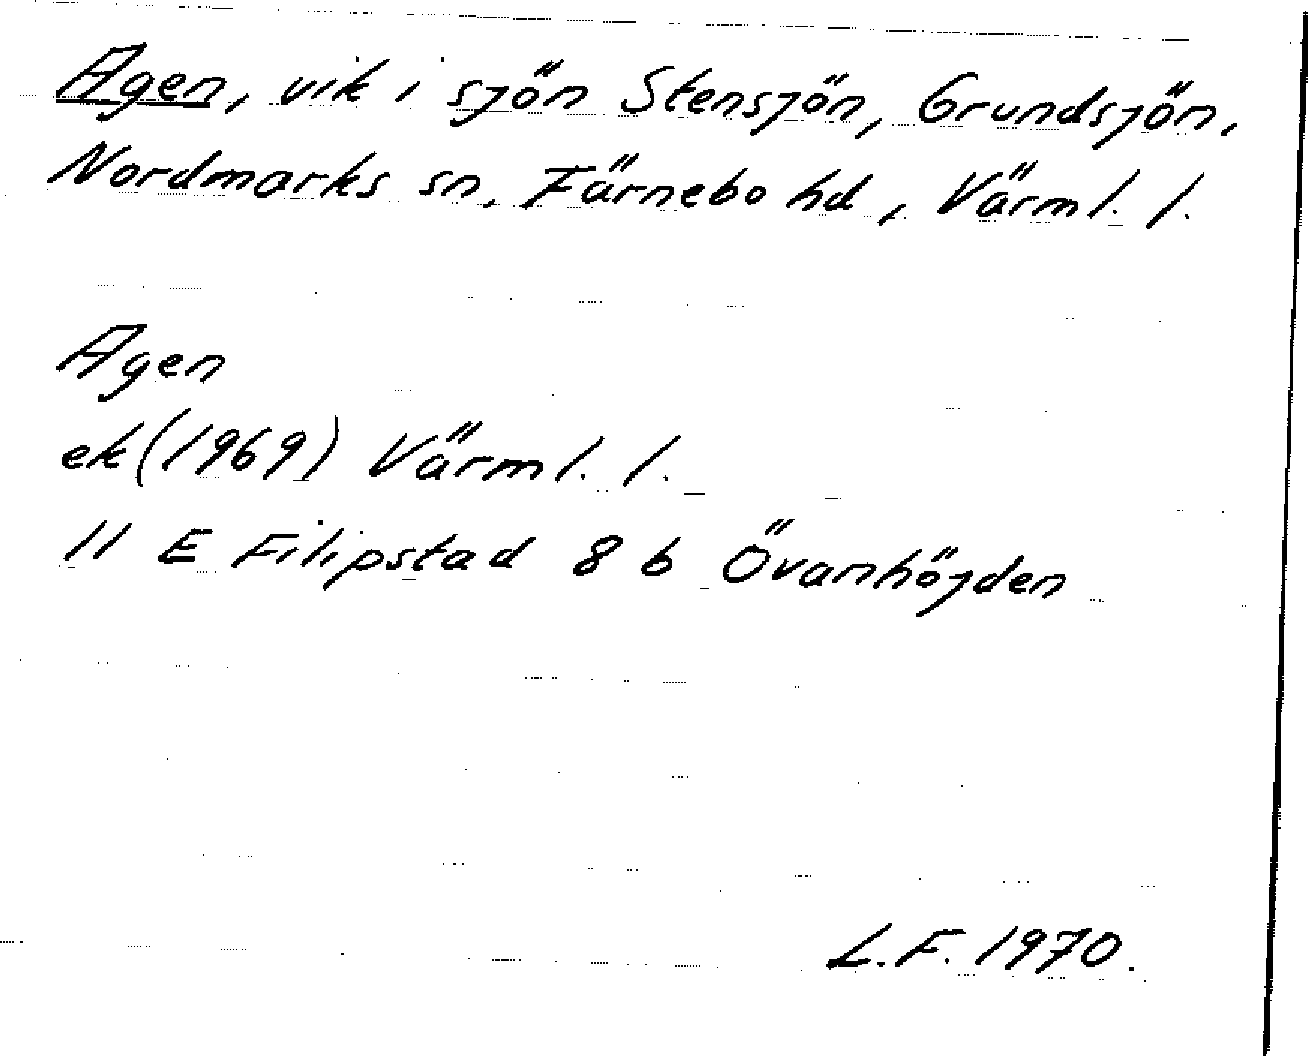 Agen, vik i sjön Stensjön, Grundsjön,
Nordmarks sn, Färnebo hd, Värml. l.
Agen
ek (1969) Värml. l.
11 E Filipstad 8 b Övanhöjden
L.F. 1970.